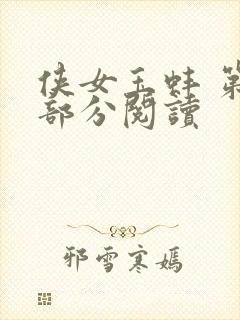 侠女玉蚌 第
部分閱讀
邪雪寒嫣